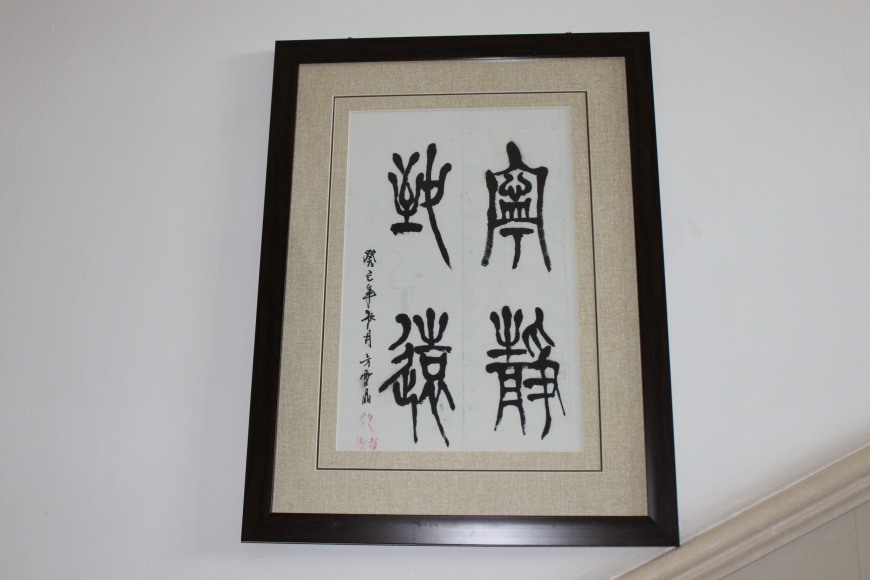 寧靜
致遠
癸巳年秋月方雪鼎